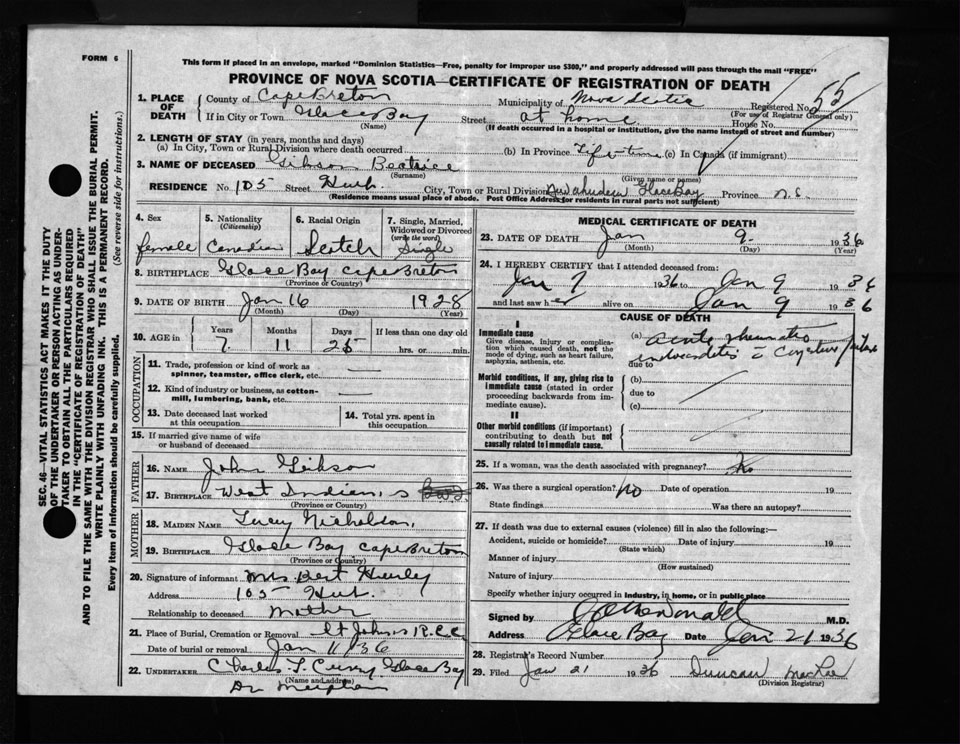 FORM 6
This form if placed in an envelope, marked "Dominion Statistics—Free, penalty for improper use $300," and properly addressed will pass through the mail "FREE"
PROVINCE OF NOVA SCOTIA—CERTIFICATE OF REGISTRATION OF DEATH
SEC. 46—VITAL STATISTICS ACT MAKES IT THE DUTY
OF THE UNDERTAKER OR PERSON ACTING AS UNDER-
TAKER TO OBTAIN ALL THE PARTICULARS REQUIRED
IN THE "CERTIFICATE OF REGISTRATION OF DEATH"
AND TO FILE THE SAME WITH THE DIVISION REGISTRAR WHO SHALL ISSUE THE BURIAL PERMIT.
WRITE PLAINLY WITH UNFADING INK. THIS IS A PERMANENT RECORD.
Every item of information should be carefully supplied. (See reverse side for instructions.)
1. PLACE OF DEATH
County of Cape Breton Municipality of Nova Scotia Registered No. 55
(For use of Registrar General only)
If in City or Town Glace Bay Street at home House No.
(Name) (If death occurred in a hospital or institution, give the name instead of street and number)
2. LENGTH OF STAY (in years, months and days)
(a) In City, Town or Rural Division where death occurred (b) In Province Life-time (c) In Canada (if immigrant)
3. NAME OF DECEASED Gibson Beatrice
(Surname) (Given name or names)
RESIDENCE No. 105 Street Hub. City, Town or Rural Division Glace Bay Province N.S.
(Residence means usual place of abode. Post Office Address for residents in rural parts not sufficient)
4. Sex female
5. Nationality (Citizenship) Canadian
6. Racial Origin Scotch
7. Single, Married, Widowed or Divorced (write the word) Single
8. BIRTHPLACE Glace Bay Cape Breton
(Province or Country)
9. DATE OF BIRTH Jan 16 1928
(Month) (Day) (Year)
10. AGE in Years 7 Months 11 Days 25 If less than one day old hrs. or min.
OCCUPATION
11. Trade, profession or kind of work as spinner, teamster, office clerk, etc. —
12. Kind of industry or business, as cotton-mill, lumbering, bank, etc. —
13. Date deceased last worked at this occupation
14. Total yrs. spent in this occupation
15. If married give name of wife or husband of deceased
FATHER
16. NAME John Gibson
17. BIRTHPLACE West Indian, s
(Province or Country)
MOTHER
18. MAIDEN NAME Lucy Nicholson,
19. BIRTHPLACE Glace Bay Cape Breton
(Province or Country)
20. Signature of informant Mrs Bert Hurley
Address 105 Hub.
Relationship to deceased Mother
21. Place of Burial, Cremation or Removal St Johns R.C.C.
Date of burial or removal Jan 11 36
22. UNDERTAKER Charles T. Curry Glace Bay
(Name and address)
MEDICAL CERTIFICATE OF DEATH
23. DATE OF DEATH Jan 9. 1936
(Month) (Day) (Year)
24. I HEREBY CERTIFY that I attended deceased from:
Jan 7 1936 to Jan 9 1936
and last saw her alive on Jan 9 1936
CAUSE OF DEATH
I
Immediate cause
Give disease, injury or complication which caused death, not the mode of dying, such as heart failure, asphyxia, asthenia, etc.
(a) acute rheumatic
endocarditis
due to
Morbid conditions, if any, giving rise to immediate cause (stated in order proceeding backwards from immediate cause).
(b)
due to
(c)
II
Other morbid conditions (if important) contributing to death but not causally related to immediate cause.
25. If a woman, was the death associated with pregnancy? No
26. Was there a surgical operation? No Date of operation 19
State findings Was there an autopsy?
27. If death was due to external causes (violence) fill in also the following:—
Accident, suicide or homicide? Date of injury 19
(State which)
Manner of injury
(How sustained)
Nature of injury
Specify whether injury occurred in industry, in home, or in public place
Signed by M.D.
Address Glace Bay Date Jan 21 1936
28. Registrar's Record Number
29. Filed Jan 21 1936 Duncan MacRae
(Division Registrar)